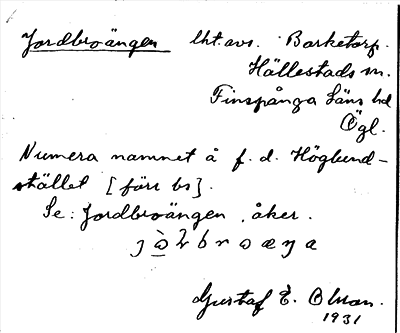 Jordbroängen lht. avs. Barketorp.
Hällestads sn.
Finspånga läns hd
Ögl.
Numera namnet å f. d. Höglund-
stället [förr bs].
Se: Jordbroängen, åker.
Gustaf E. Olson.
1931